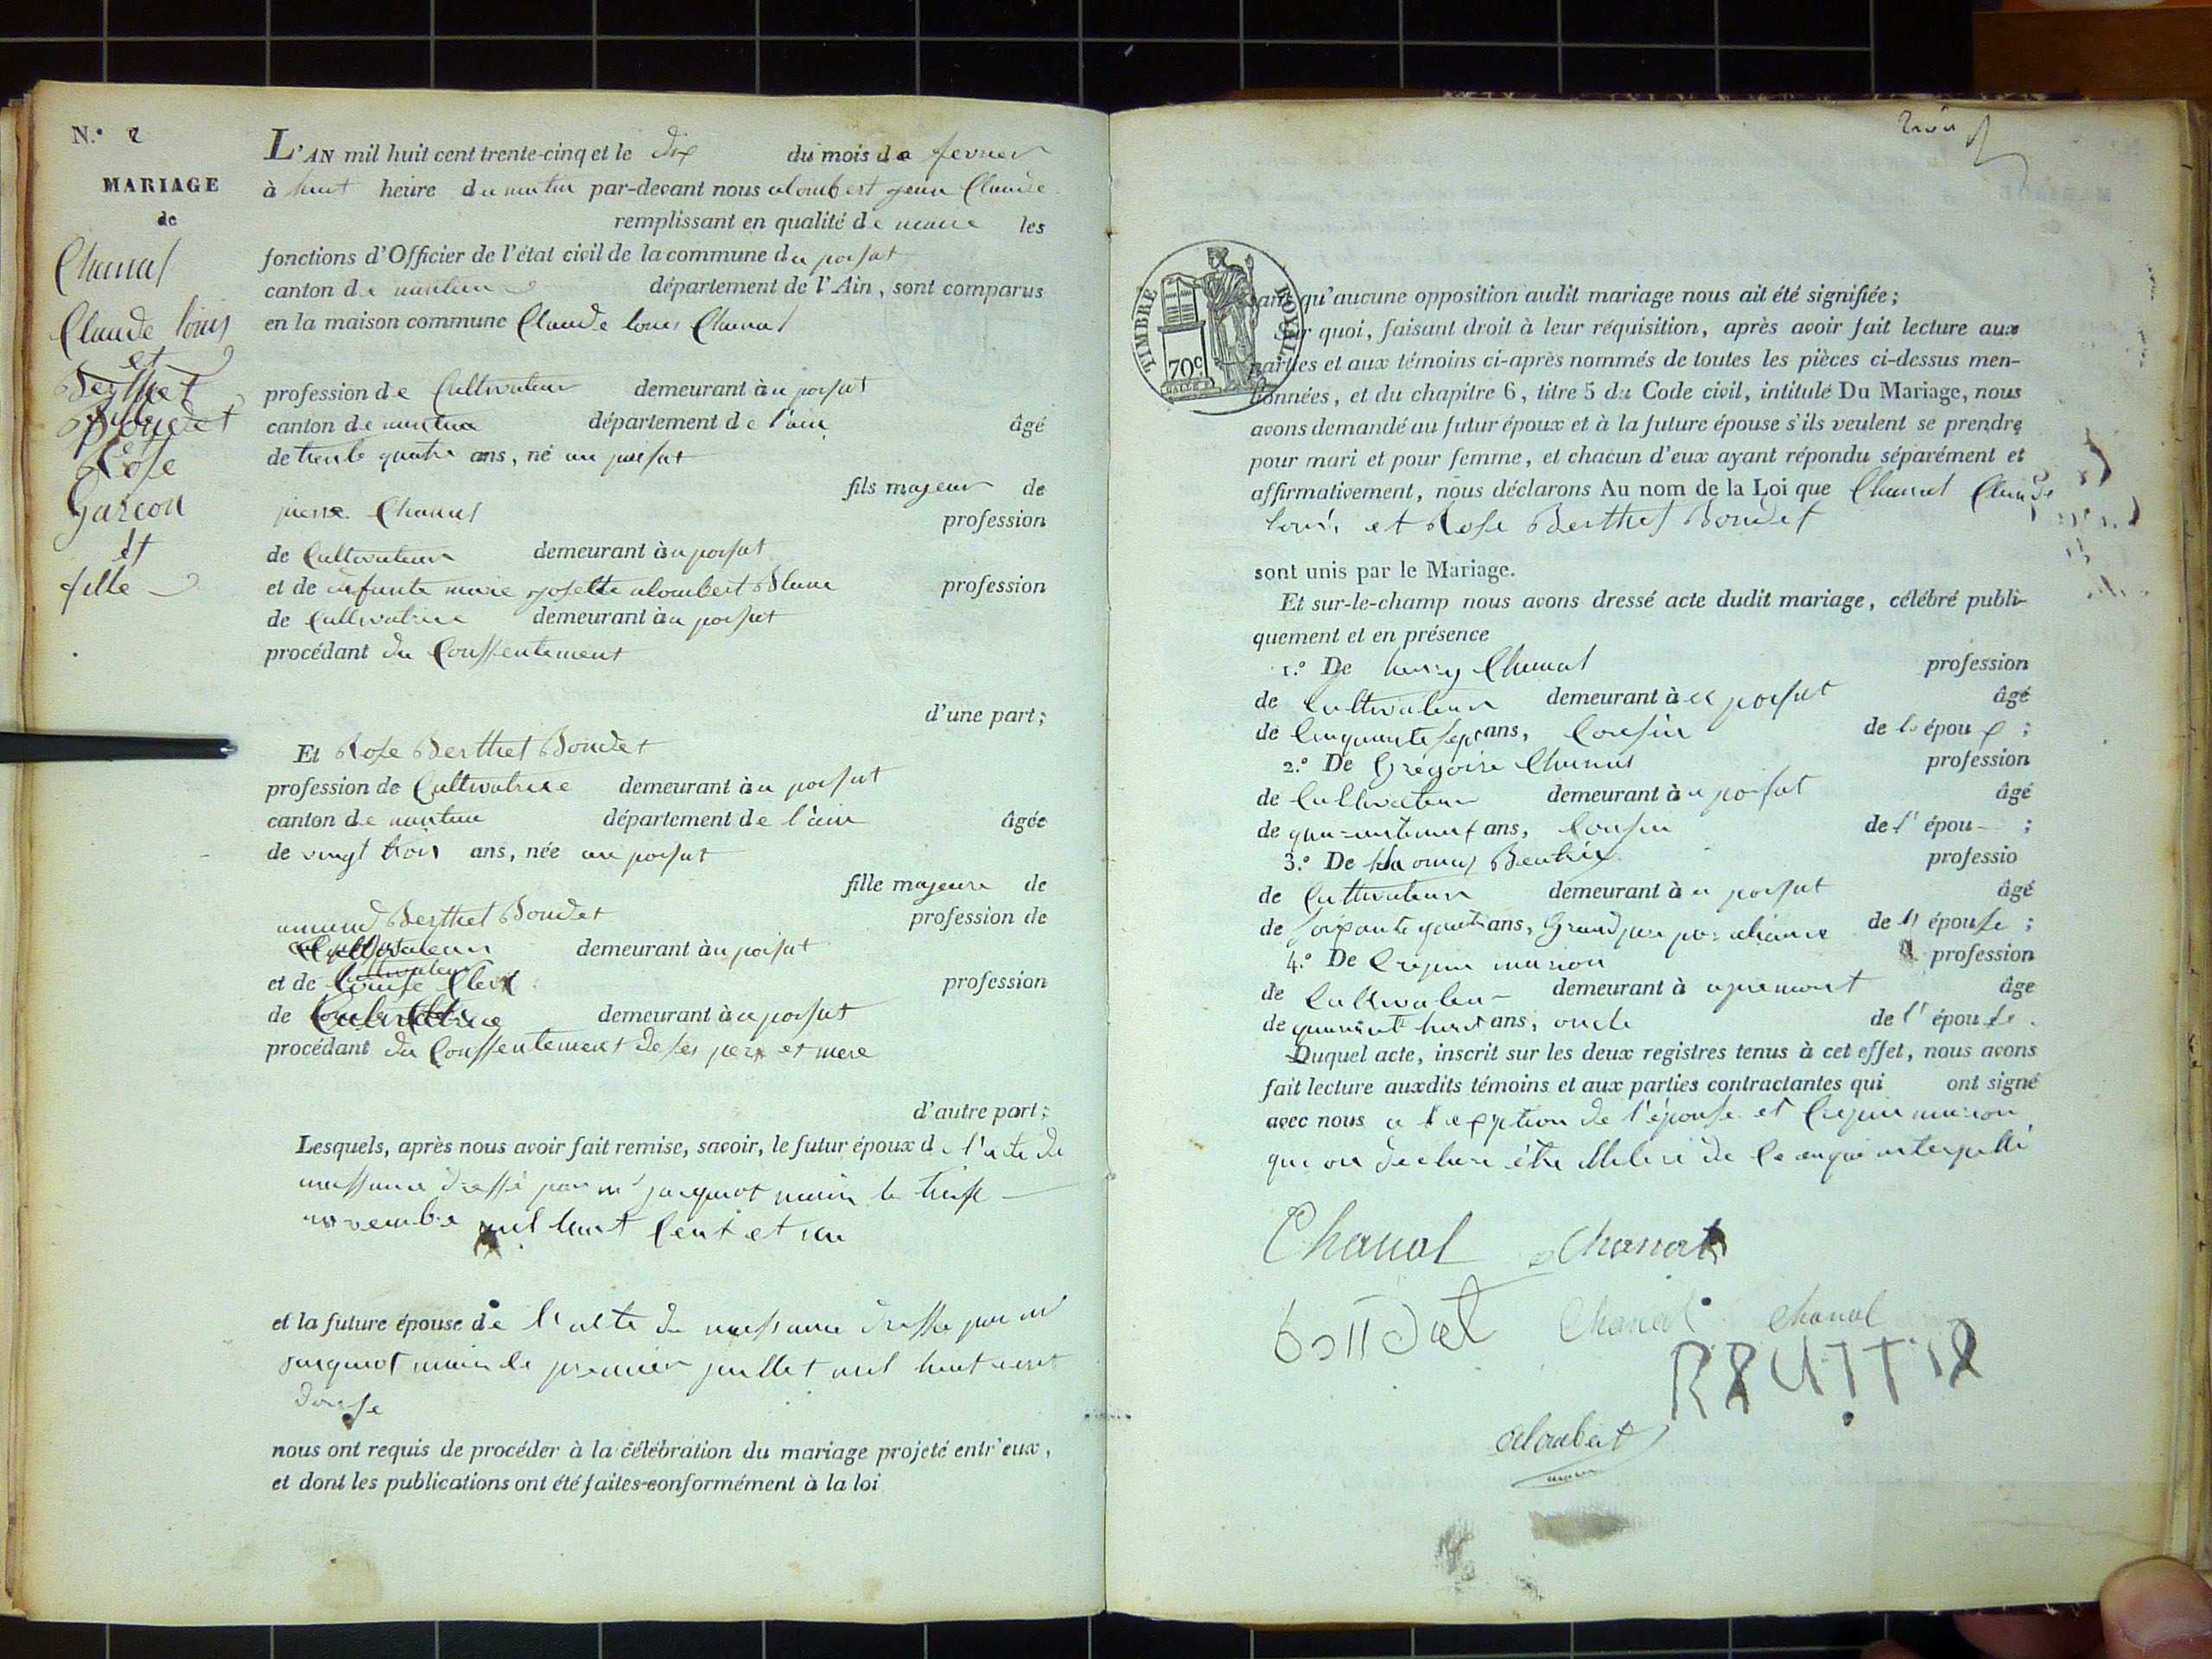 N.º 2
MARIAGE
de
Chanal
Claude louis
et
Berthet
Boudet
Rose
Garcon
et
fille
L'AN mil huit cent trente-cinq et le dix du mois de fevrier
à huit heure du matin par-devant nous alombert jean Claude
remplissant en qualité de maire les
fonctions d'Officier de l'état civil de la commune du poisat
canton de nantua département de l'Ain, sont comparus
en la maison commune Claude louis Chanal
profession de Cultivateur demeurant à u poisat
canton de nantua département de l'ain âgé
de trente quatre ans, né au poisat
fils majeur de
pierre Chanal profession
de Cultivateur demeurant à u poisat
et de defunte marie josette alombert Blanc profession
de Cultivatrice demeurant à u poisat
procédant du Consentement
d'une part;
Et Rose Berthet Boudet
profession de Cultivatrice demeurant à u poisat
canton de nantua département de l'ain âgée
de vingt trois ans, née au poisat
fille majeure de
amand Berthet Boudet profession de
Cultivateur demeurant à u poisat
et de Louise Clerc profession
de Cultivatrice demeurant à u poisat
procédant du Consentement de ses pere et mere
d'autre part;
Lesquels, après nous avoir fait remise, savoir, le futur époux de l'acte de
naissance dressé par mr jacquiot maire le treise
novembre mil huit Cent et un
et la future épouse de l'acte de naissance dressé par mr
jacquiot maire le premier juillet mil huit cent
douse
nous ont requis de procéder à la célébration du mariage projeté entr'eux,
et dont les publications ont été faites conformément à la loi
trois
TIMBRE ROYAL
70c
sans qu'aucune opposition audit mariage nous ait été signifiée;
Sur quoi, faisant droit à leur réquisition, après avoir fait lecture aux
parties et aux témoins ci-après nommés de toutes les pièces ci-dessus men-
tionnées, et du chapitre 6, titre 5 du Code civil, intitulé Du Mariage, nous
avons demandé au futur époux et à la future épouse s'ils veulent se prendre
pour mari et pour femme, et chacun d'eux ayant répondu séparément et
affirmativement, nous déclarons Au nom de la Loi que Chanal Claude
louis et Rose Berthet Boudet
sont unis par le Mariage.
Et sur-le-champ nous avons dressé acte dudit mariage, célébré publi-
quement et en présence
1.º De Chanal profession
de Cultivateur demeurant à u poisat âgé
de Cinquante sept ans, Cousin de l'époux;
2.º De Grégoire Chanal profession
de Cultivateur demeurant à u poisat âgé
de quarante neuf ans, Cousin de l'épou;
3.º De thomas Beatrix professio
de Cultivateur demeurant à u poisat âgé
de soixante quatre ans, Grand pere par aliance de l'épouse;
4.º De Crepin marion profession
de Cultivateur demeurant à apremont âge
de quarante huit ans, oncle de l'épouse.
Duquel acte, inscrit sur les deux registres tenus à cet effet, nous avons
fait lecture auxdits témoins et aux parties contractantes qui ont signé
avec nous a l'exption de l'épouse et Crepin marion
qui on declare être illitere de ce enquis interpellé
Chanal Chanal
boudet Chanal Chanal
alombert
maire